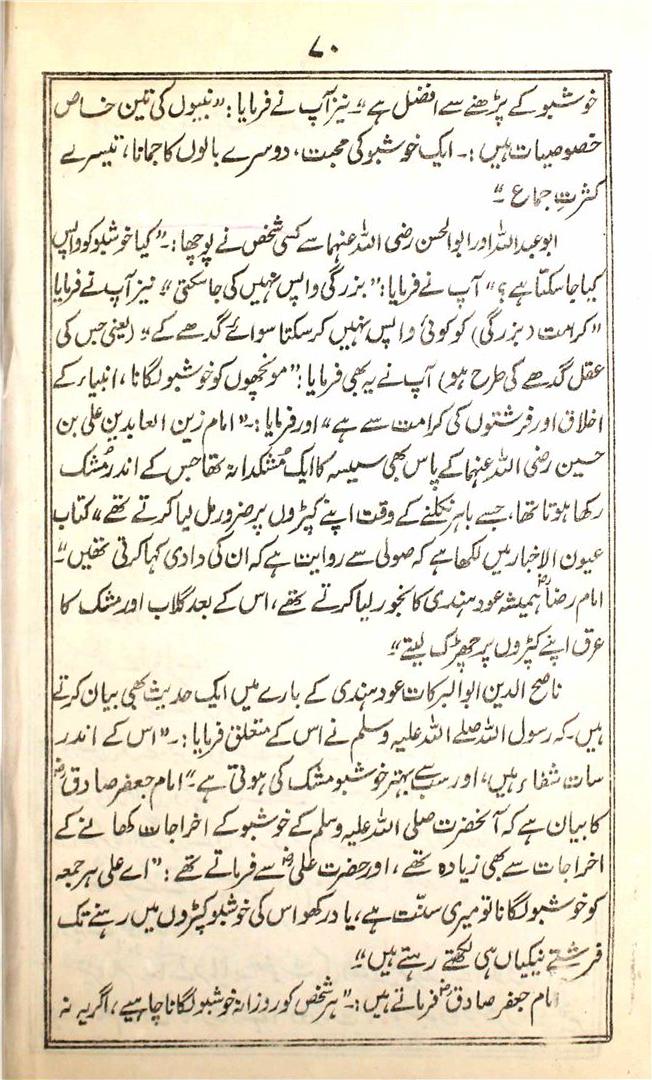 ۷۰
خوشبو کے پڑھنے سے افضل ہے“۔ نیز آپ نے فرمایا : ”نبیوں کی تین خاص
خصوصیات ہیں :۔ ایک خوشبو کی محبت ، دوسرے بالوں کا جمانا ، تیسرے
کثرتِ جماع ۔“
ابو عبداللہ اور ابو الحسن رضی اللہ عنہما سے کسی شخص نے پوچھا :۔”کیا خوشبو کو واپس
کیا جا سکتا ہے ؟“ آپ نے فرمایا : ”بزرگی واپس نہیں کی جا سکتی“ نیز آپ نے فرمایا
”کرامت (بزرگی) کو کوئی واپس نہیں کر سکتا سوائے گدھے کے“ (یعنی جس کی
عقل گدھے کی طرح ہو) آپ نے یہ بھی فرمایا : ”مونچھوں کو خوشبو لگانا ، انبیاء کے
اخلاق اور فرشتوں کی کرامت سے ہے“ اور فرمایا :۔”امام زین العابدین علی بن
حسین رضی اللہ عنہما کے پاس بھی سیسہ کا ایک مُشکدانہ تھا جس کے اندر مُشک
رکھا ہوتا تھا ، جسے باہر نکلنے کے وقت اپنے کپڑوں پر ضرور مل لیا کرتے تھے“ کتاب
عیون الاخبار میں لکھا ہے کہ صولی سے روایت ہے کہ ان کی دادی کہا کرتی تھیں۔“
امام رضاؓ ہمیشہ عود ہندی کا بخور لیا کرتے تھے ، اس کے بعد گلاب اور مشک کا
عرق اپنے کپڑوں پر چھڑک لیتے“
ناصح الدین ابوالبرکات عود ہندی کے بارے میں ایک حدیث بھی بیان کرتے
ہیں۔ کہ رسول اللہ صلے اللہ علیہ وسلم نے اس کے متعلق فرمایا :۔”اس کے اندر
سات شفاء ہیں ، اور سب سے بہتر خوشبو مشک کی ہوتی ہے۔“ امام جعفر صادقؓ
کا بیان ہے کہ آنحضرت صلی اللہ علیہ وسلم کے خوشبو کے اخراجات کھانے کے
اخراجات سے بھی زیادہ تھے ، اور حضرت علیؓ سے فرماتے تھے : ”اے علی ہر جمعہ
کو خوشبو لگانا تو میری سنّت ہے ، یاد رکھو اس کی خوشبو کپڑوں میں رہنے تک
فرشتے نیکیاں ہی لکھتے رہتے ہیں“۔
امام جعفر صادقؓ فرماتے ہیں :۔”ہر شخص کو روزانہ خوشبو لگانا چاہیے ، اگر یہ نہ